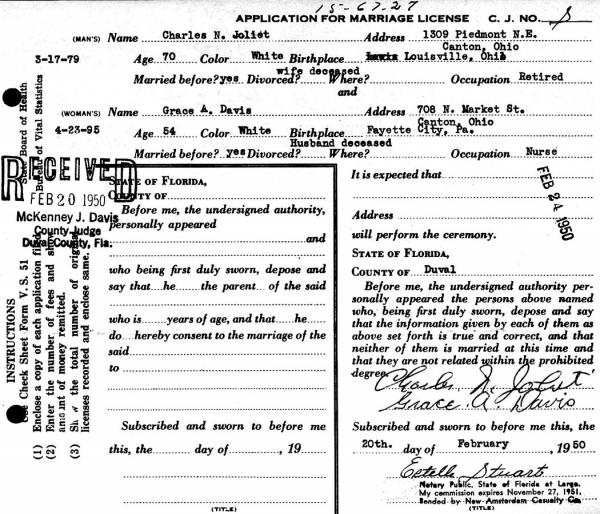 15-67-27
APPLICATION FOR MARRIAGE LICENSE C. J. NO. S
(MAN'S) Name Charles N. Joliet Address 1309 Piedmont N.E.
Canton, Ohio
3-17-79 Age 70 Color White Birthplace Louisville, Ohio
wife deceased
Married before? yes Divorced? Where? Occupation Retired
and
(WOMAN'S) Name Grace A. Davis Address 708 N. Market St.
Canton, Ohio
4-23-95 Age 54 Color White Birthplace Fayette City, Pa.
Husband deceased
Married before? yes Divorced? Where? Occupation Nurse
State Board of Health
Bureau of Vital Statistics
RECEIVED
FEB 20 1950
McKenney J. Davis
County Judge
Duval County, Fla.
INSTRUCTIONS
Use Check Sheet Form V. S. 51
(1) Enclose a copy of each application filed
(2) Enter the number of fees and
amount of money remitted.
(3) Show the total number of original
licenses recorded and enclose same.
STATE OF FLORIDA,
COUNTY OF
Before me, the undersigned authority,
personally appeared
and
who being first duly sworn, depose and
say that he the parent of the said
who is years of age, and that he
do hereby consent to the marriage of the
said
to
Subscribed and sworn to before me
this, the day of , 19
(TITLE)
It is expected that
FEB 24 1950
Address
will perform the ceremony.
STATE OF FLORIDA,
COUNTY OF Duval
Before me, the undersigned authority per-
sonally appeared the persons above named
who, being first duly sworn, depose and say
that the information given by each of them as
above set forth is true and correct, and that
neither of them is married at this time and
that they are not related within the prohibited
degree.
Charles N. Joliet
Grace A. Davis
Subscribed and sworn to before me this, the
20th. day of February 1950
Estelle Stuart
Notary Public, State of Florida at Large.
My commission expires November 27, 1951.
Bonded by New Amsterdam Casualty Co.
(TITLE)